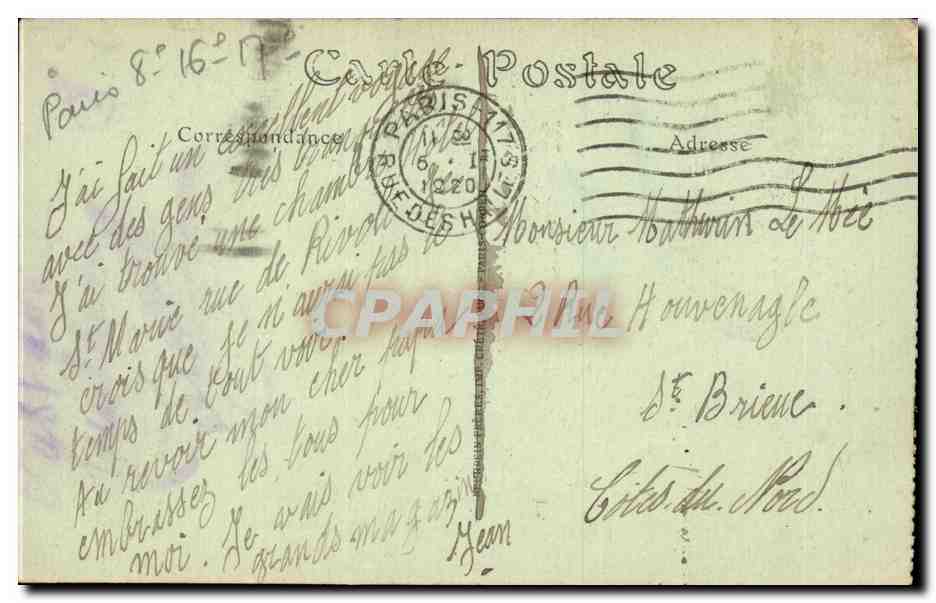 Carte Postale
Correspondance
Adresse
Paris 8e 16e 17e
J'ai fait un excellent voyage
avec des gens très
J'ai trouvé une chambre
St. Marie rue de Rivoli
crois que je n'aurai pas le
temps de tout voir.
Au revoir mon cher papa
embrassez les tous pour
moi. Je vais voir les
grands magazins
Jean
PARIS 117
RUE DES HALLES
1220
Monsieur Mathurin Le Mée
2 Rue Houvenagle
St Brieuc.
Côtes-du-Nord.
CPAPHIL